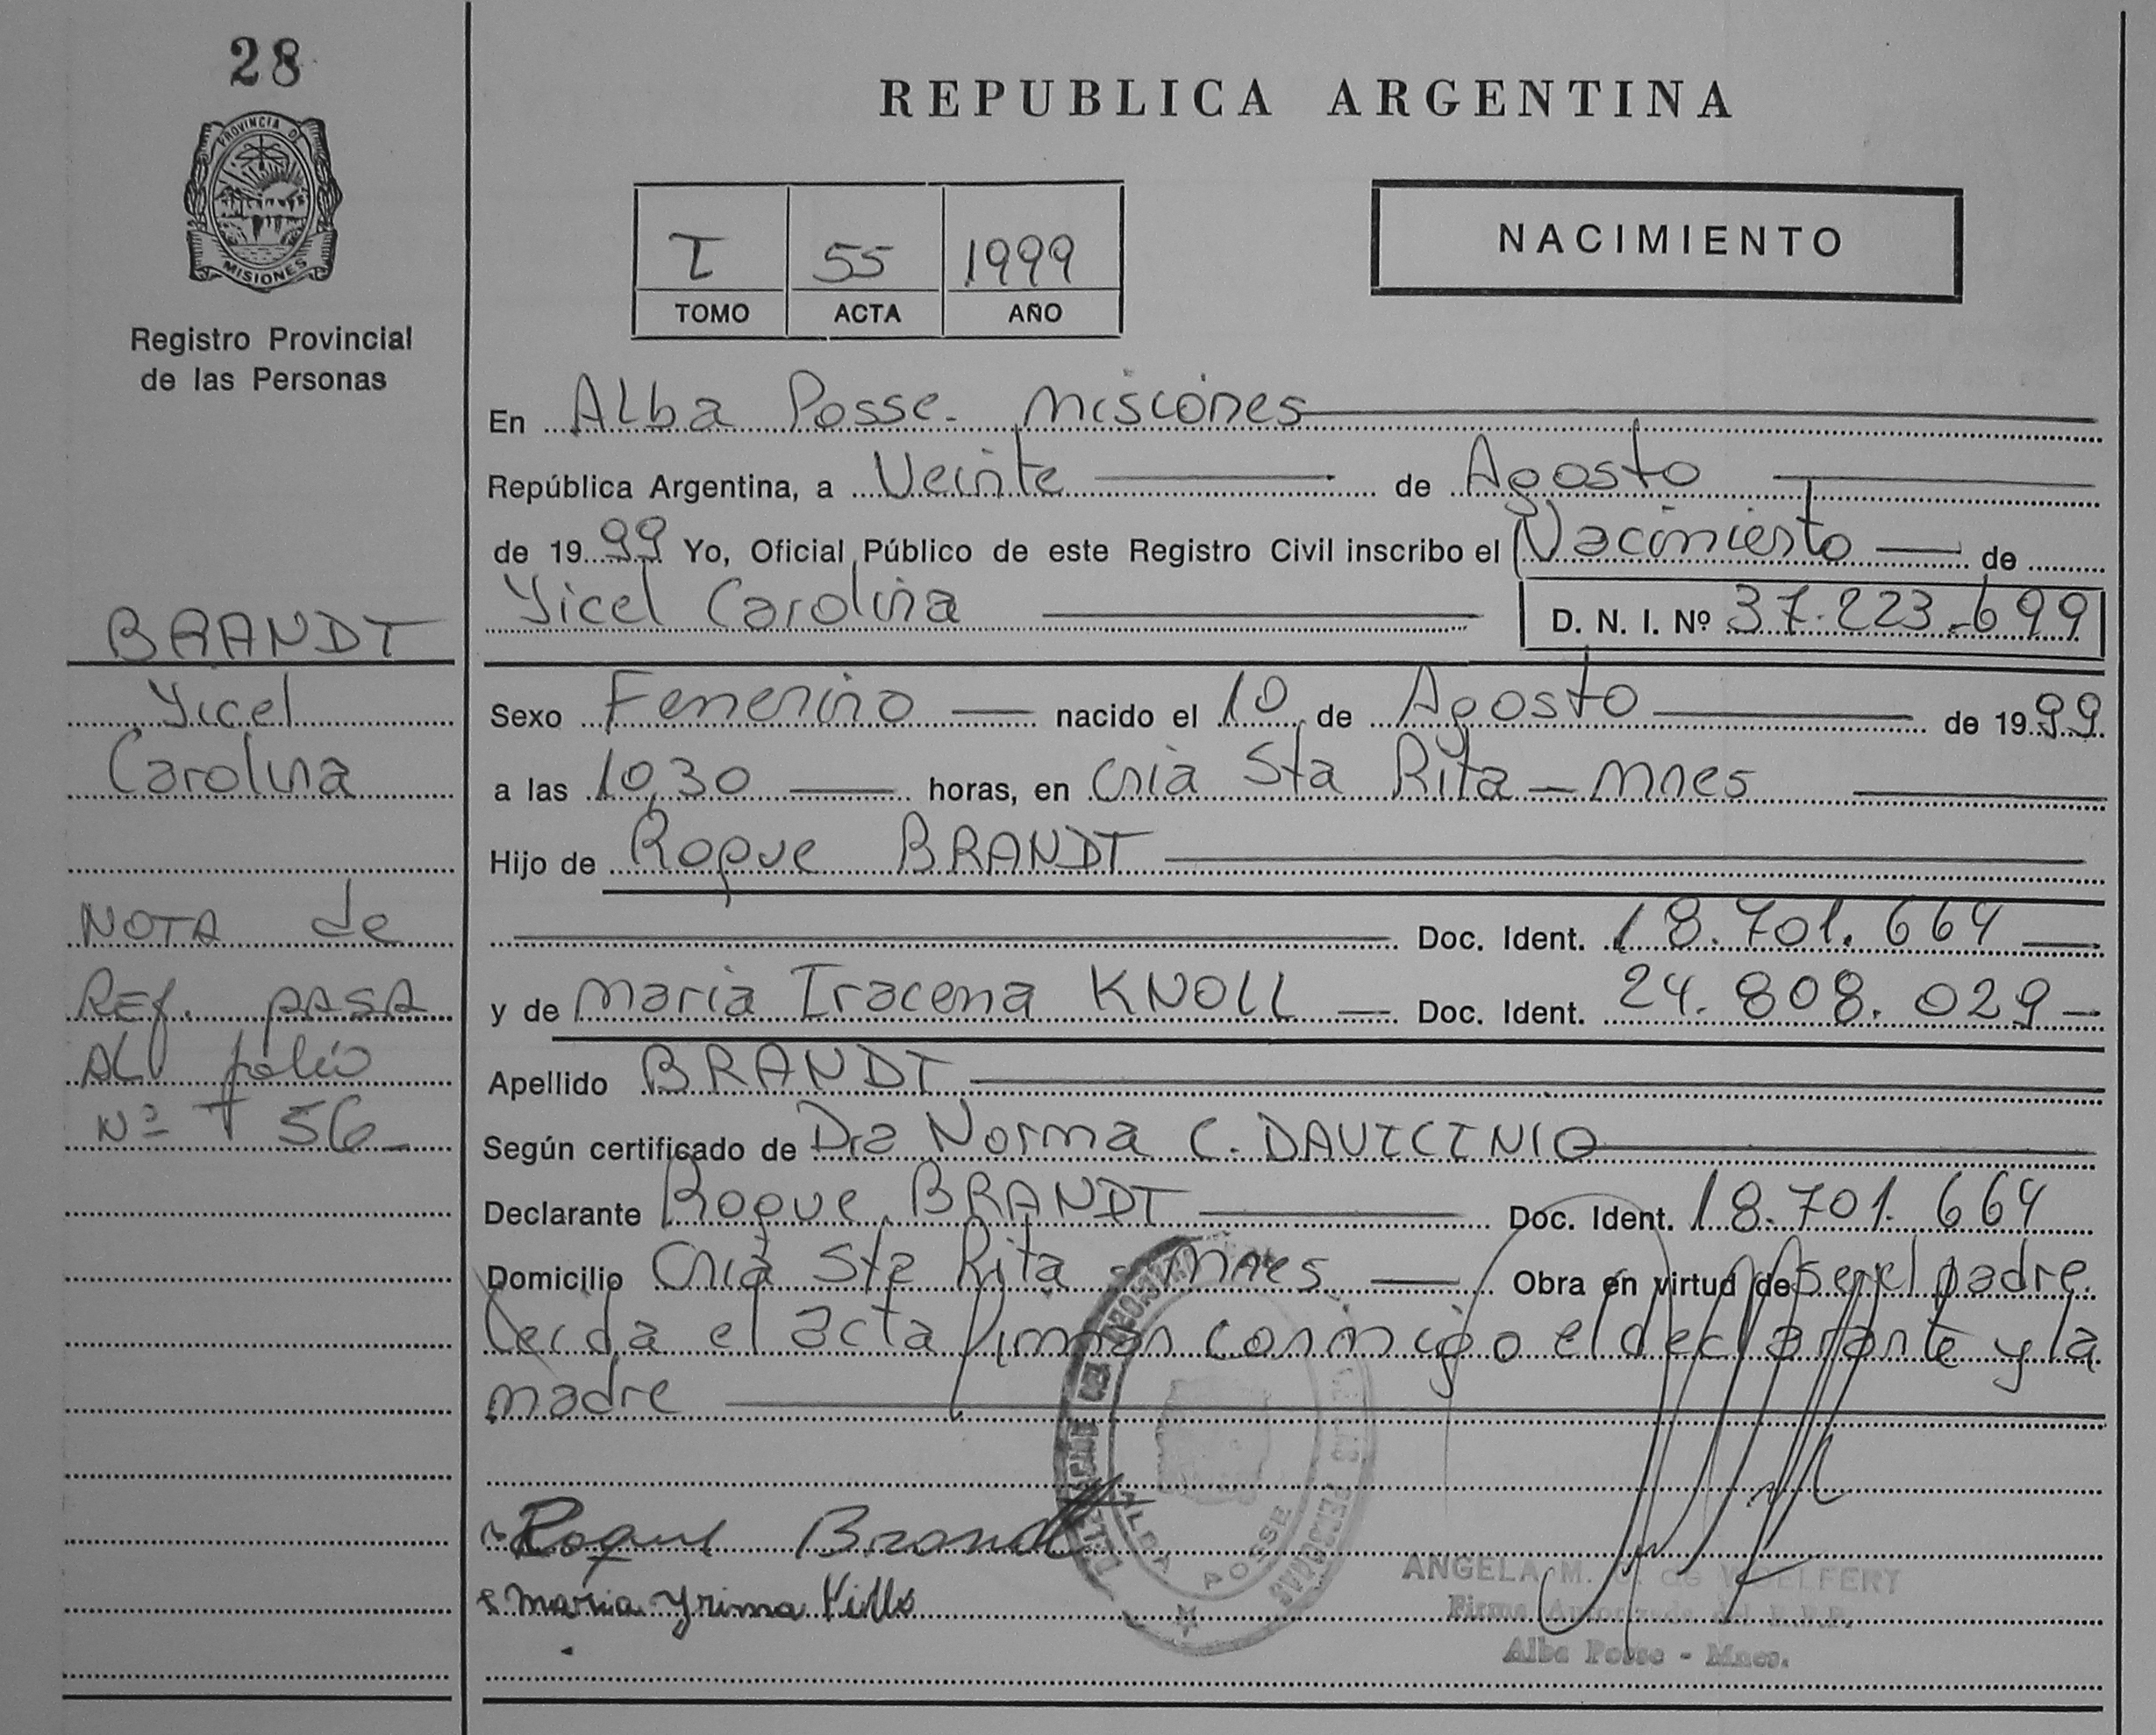 28
PROVINCIA DE
MISIONES
Registro Provincial
de las Personas
REPUBLICA ARGENTINA
NACIMIENTO
I 55 1999
TOMO ACTA AÑO
En Alba Posse - Misiones
República Argentina, a Veinte de Agosto
de 1999 Yo, Oficial Público de este Registro Civil inscribo el Nacimiento de
Yicel Carolina D. N. I. Nº 37.223.699
BRANDT
Yicel
Carolina
Sexo Femenino nacido el 10 de Agosto de 1999
a las 10,30 horas, en Cnia Sta Rita - Mnes
Hijo de Roque BRANDT
Doc. Ident. 18.701.664
y de Maria Iracema KNOLL Doc. Ident. 24.808.029
Apellido BRANDT
Según certificado de Dra Norma C. DAVICINIO
Declarante Roque BRANDT Doc. Ident. 18.701.664
Domicilio Cnia Sta Rita - Mnes Obra en virtud de ser el padre.
Leida el acta firman conmigo el declarante y la
madre
NOTA de
REf. PASA
AL folio
Nº T 56
Roque Brandt
Maria
ALBA POSSE
PERSONAS
ANGELA M. de WOELFERT
Firma Autorizada del R.P.P.
Alba Posse - Mnes.